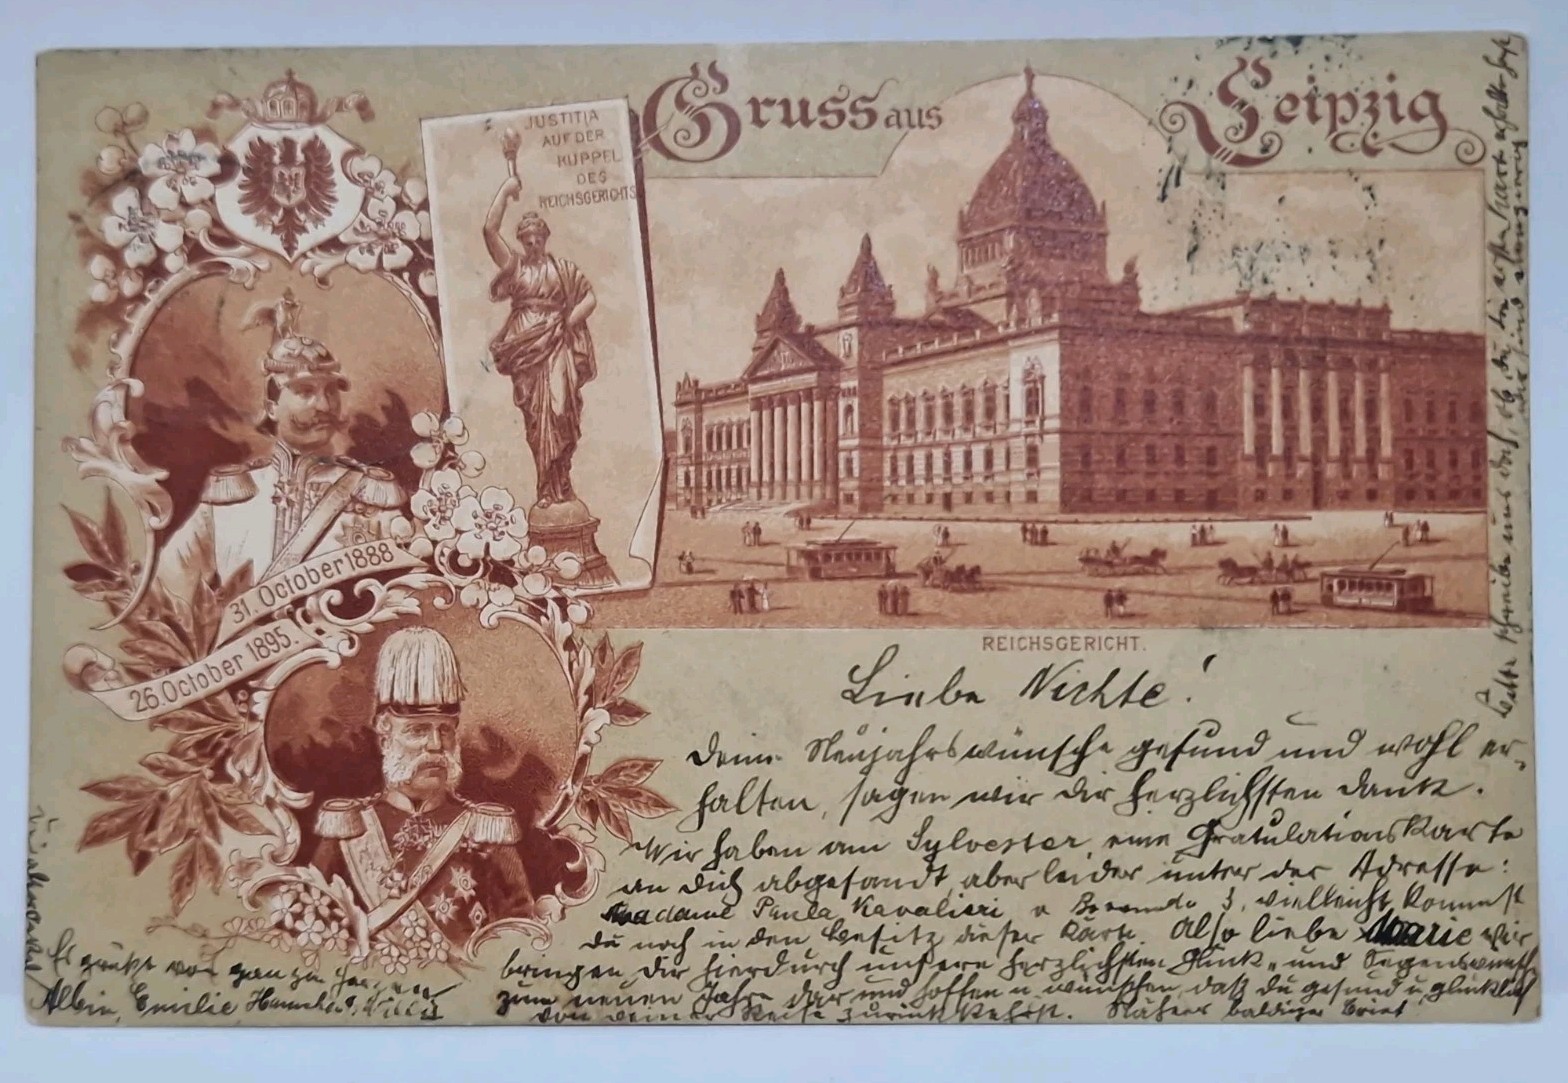 Gruss aus Leipzig
JUSTITIA
AUF DER
KUPPEL
DES
REICHSGERICHTS
31. October 1888.
26. October 1895.
REICHSGERICHT.
Liebe Nichte!
Deine Neujahrswünsche gesund und wohl er¬
halten, sagen wir dir herzlichsten Dank.
Wir haben am Sylvester, eine Gratulationskarte
an dich abgesandt, aber leider unter der Adresse:
Madame Paula Kavalieri, 3, vielleicht kommst
du noch in den Besitz dieser Karte. Also liebe Marie wir
bringen dir hierdurch unsere herzlichsten Glück- und Segenswünsche
zum neuen Jahre dar und hoffen u wünschen daß du gesund u glücklich
von deiner Reise zurückkehrst. Näheres baldiger Brief
Es grüßt von ganzem Herzen
Albin, Emilie